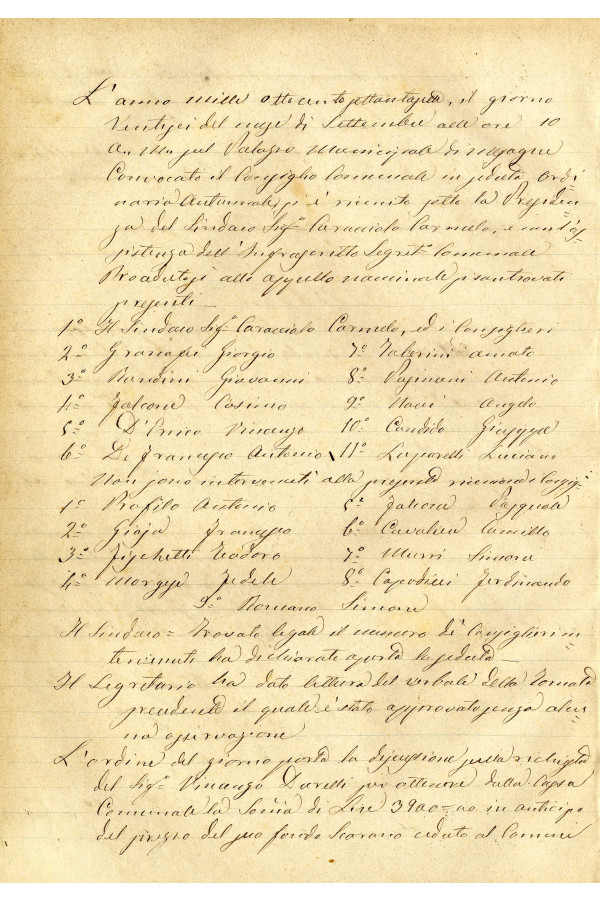 L'anno mille ottocento settantasette, il giorno
Ventisei del mese di Settembre alle ore 10
a. m. nel Palazzo Municipale di Mesagne
Convocato il Consiglio Comunale in seduta Ordi=
naria Autunnale, si è riunito sotto la Presiden=
za del Sindaco Sigr Caracciolo Carmelo, e coll'as=
sistenza dell'Infrascritto Segreto Comunale
Procedutosi allo appello nominale si son trovati
presenti —
1° Il Sindaco Sigr Caracciolo Carmelo, ed i Consiglieri
2° Granafei Giorgio 7° Valerini Amato
3° Giovanni 8° Antonio
4° Falcone Cosimo 9° Angelo
5° D'Enrico Vincenzo 10° Candido Giuseppe
6° De Francesco Antonio 11° Luparelli Luciano
Non sono intervenuti alla presente riunione i Consig=
1° Profilo Antonio 5° Falcone Pasquale
2° Gioja Francesco 6° Cavaliere Camillo
3° Fischetti Teodoro 7° Murri Simone
4° Morgese Fedele 8° Capodieci Ferdinando
9° Romano Simone
Il Sindaco = Trovato legale il numero de' Consiglieri in=
tervenuti ha dichiarato aperta la seduta —
Il Segretario ha dato lettura del verbale della tornata
precedente il quale è stato approvato senza alcu=
na osservazione
L'ordine del giorno porta la discussione sulla richiesta
del Sigr Vincenzo per ottenere dalla Cassa
Comunale la Soma di Lire 3900=00 in anticipo
del prezzo del suo fondo Scorano ceduto al Comune